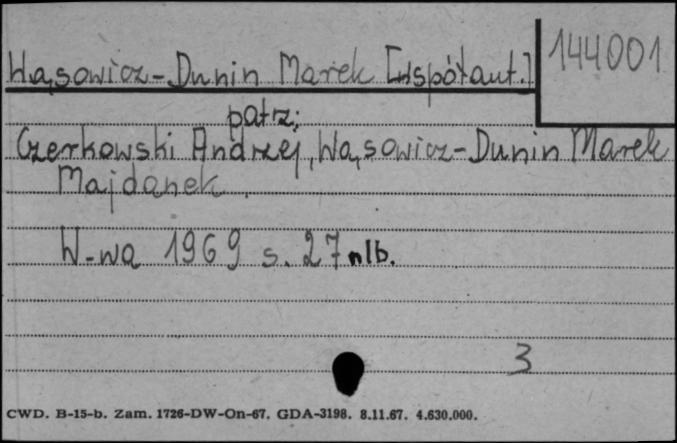 144001
Wąsowicz-Dunin Marek [Współaut.]
patrz:
Czerkowski Andrzej, Wąsowicz-Dunin Marek
Majdanek.
W-wa 1969 s. 27 nlb.
3
CWD. B-15-b. Zam. 1726-DW-On-67. GDA-3198. 8.11.67. 4.630.000.